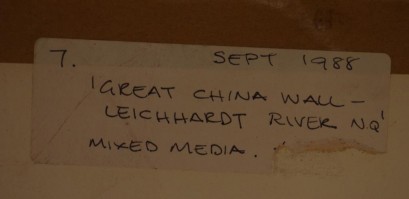 7. SEPT 1988
'GREAT CHINA WALL –
LEICHHARDT RIVER NQ'
MIXED MEDIA.